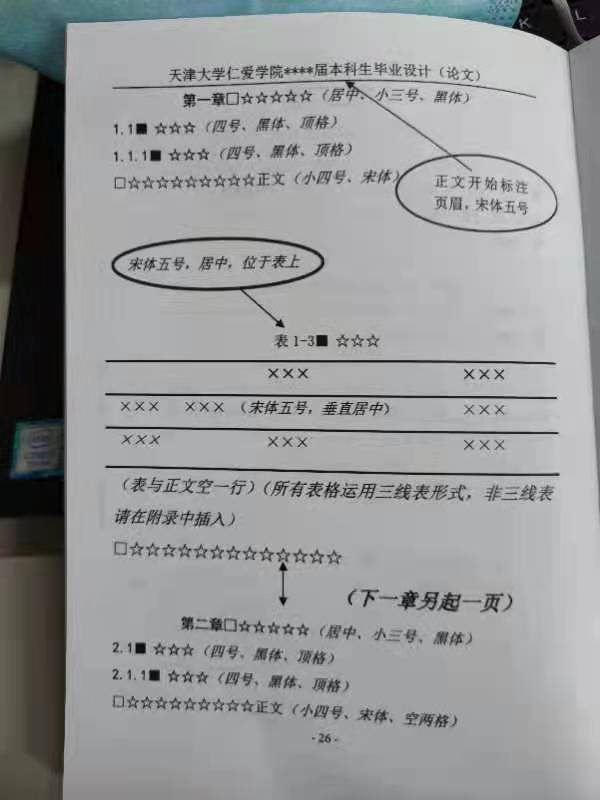 天津大学仁爱学院****届本科生毕业设计（论文）
第一章□☆☆☆☆☆（居中、小三号、黑体）
1.1■ ☆☆☆（四号、黑体、顶格）
1.1.1■ ☆☆☆（四号、黑体、顶格）
□☆☆☆☆☆☆☆☆☆正文（小四号、宋体）
正文开始标注
页眉，宋体五号
宋体五号，居中，位于表上
表 1-3■ ☆☆☆
××× ×××
××× ×××（宋体五号，垂直居中） ×××
××× ××× ×××
（表与正文空一行）（所有表格运用三线表形式，非三线表
请在附录中插入）
□☆☆☆☆☆☆☆☆☆☆☆☆☆☆☆
（下一章另起一页）
第二章□☆☆☆☆☆（居中、小三号、黑体）
2.1■ ☆☆☆（四号、黑体、顶格）
2.1.1■ ☆☆☆（四号、黑体、顶格）
□☆☆☆☆☆☆☆☆☆正文（小四号、宋体、空两格）
- 26 -
K
L